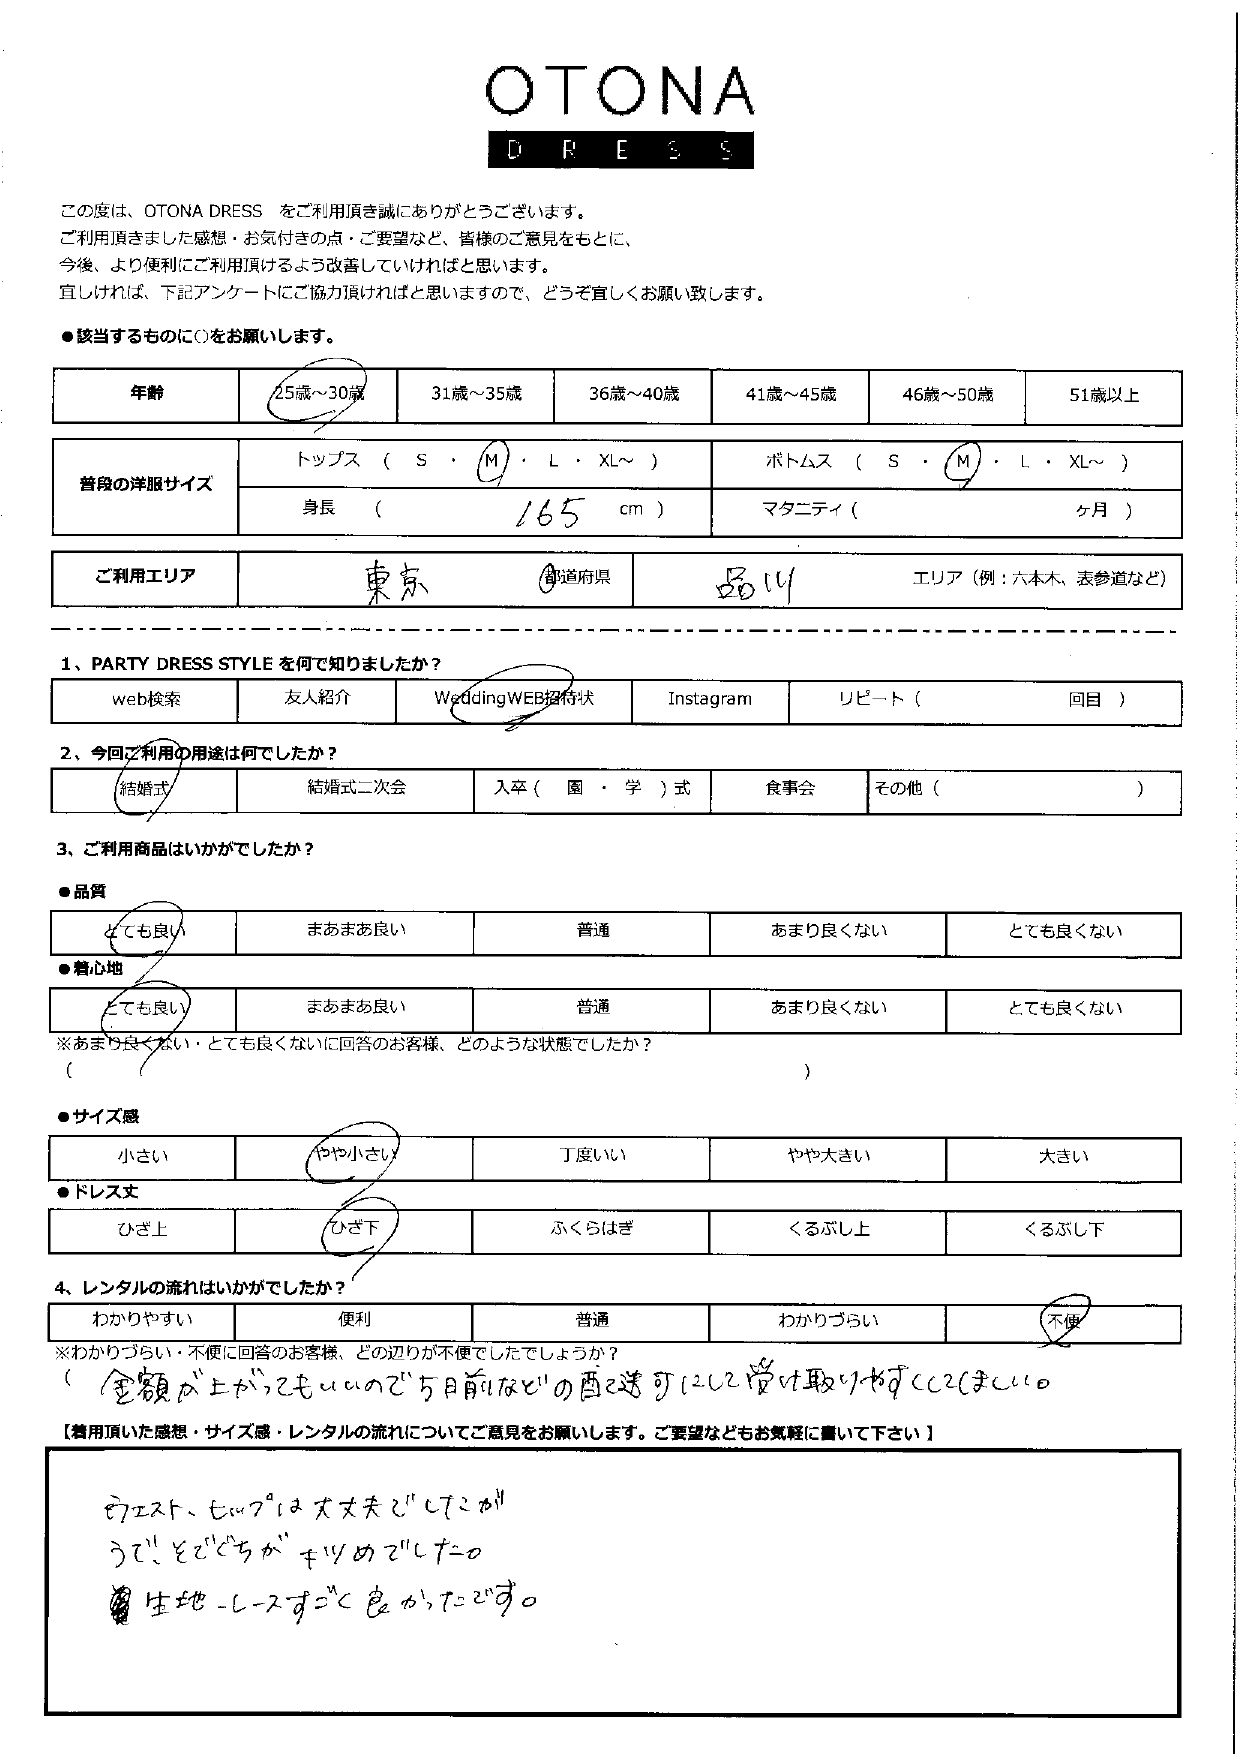 OTONA
DRESS
この度は、OTONA DRESS をご利用頂き誠にありがとうございます。
ご利用頂きました感想・お気付きの点・ご要望など、皆様のご意見をもとに、
今後、より便利にご利用頂けるよう改善していければと思います。
宜しければ、下記アンケートにご協力頂ければと思いますので、どうぞ宜しくお願い致します。
●該当するものに○をお願いします。
年齢 25歳～30歳 31歳～35歳 36歳～40歳 41歳～45歳 46歳～50歳 51歳以上
普段の洋服サイズ トップス ( S ・ M ・ L ・ XL～ ) ボトムス ( S ・ M ・ L ・ XL～ )
身長 ( 165 cm ) マタニティ ( ヶ月 )
ご利用エリア 東京 都道府県 品川 エリア（例：六本木、表参道など）
1、PARTY DRESS STYLE を何で知りましたか？
web検索 友人紹介 WeddingWEB招待状 Instagram リピート ( 回目 )
2、今回ご利用の用途は何でしたか？
結婚式 結婚式二次会 入卒 ( 園 ・ 学 ) 式 食事会 その他 ( )
3、ご利用商品はいかがでしたか？
●品質
とても良い まあまあ良い 普通 あまり良くない とても良くない
●着心地
とても良い まあまあ良い 普通 あまり良くない とても良くない
※あまり良くない・とても良くないに回答のお客様、どのような状態でしたか？
( )
●サイズ感
小さい やや小さい 丁度いい やや大きい 大きい
●ドレス丈
ひざ上 ひざ下 ふくらはぎ くるぶし上 くるぶし下
4、レンタルの流れはいかがでしたか？
わかりやすい 便利 普通 わかりづらい 不便
※わかりづらい・不便に回答のお客様、どの辺りが不便でしたでしょうか？
( 金額が上がってもいいので5日前などの配送可にして受け取りやすくしてほしい。
【着用頂いた感想・サイズ感・レンタルの流れについてご意見をお願いします。ご要望などもお気軽に書いて下さい 】
ウエスト、ヒップは大丈夫でしたが
うで、そでぐちがキツめでした。
生地レースすごく良かったです。